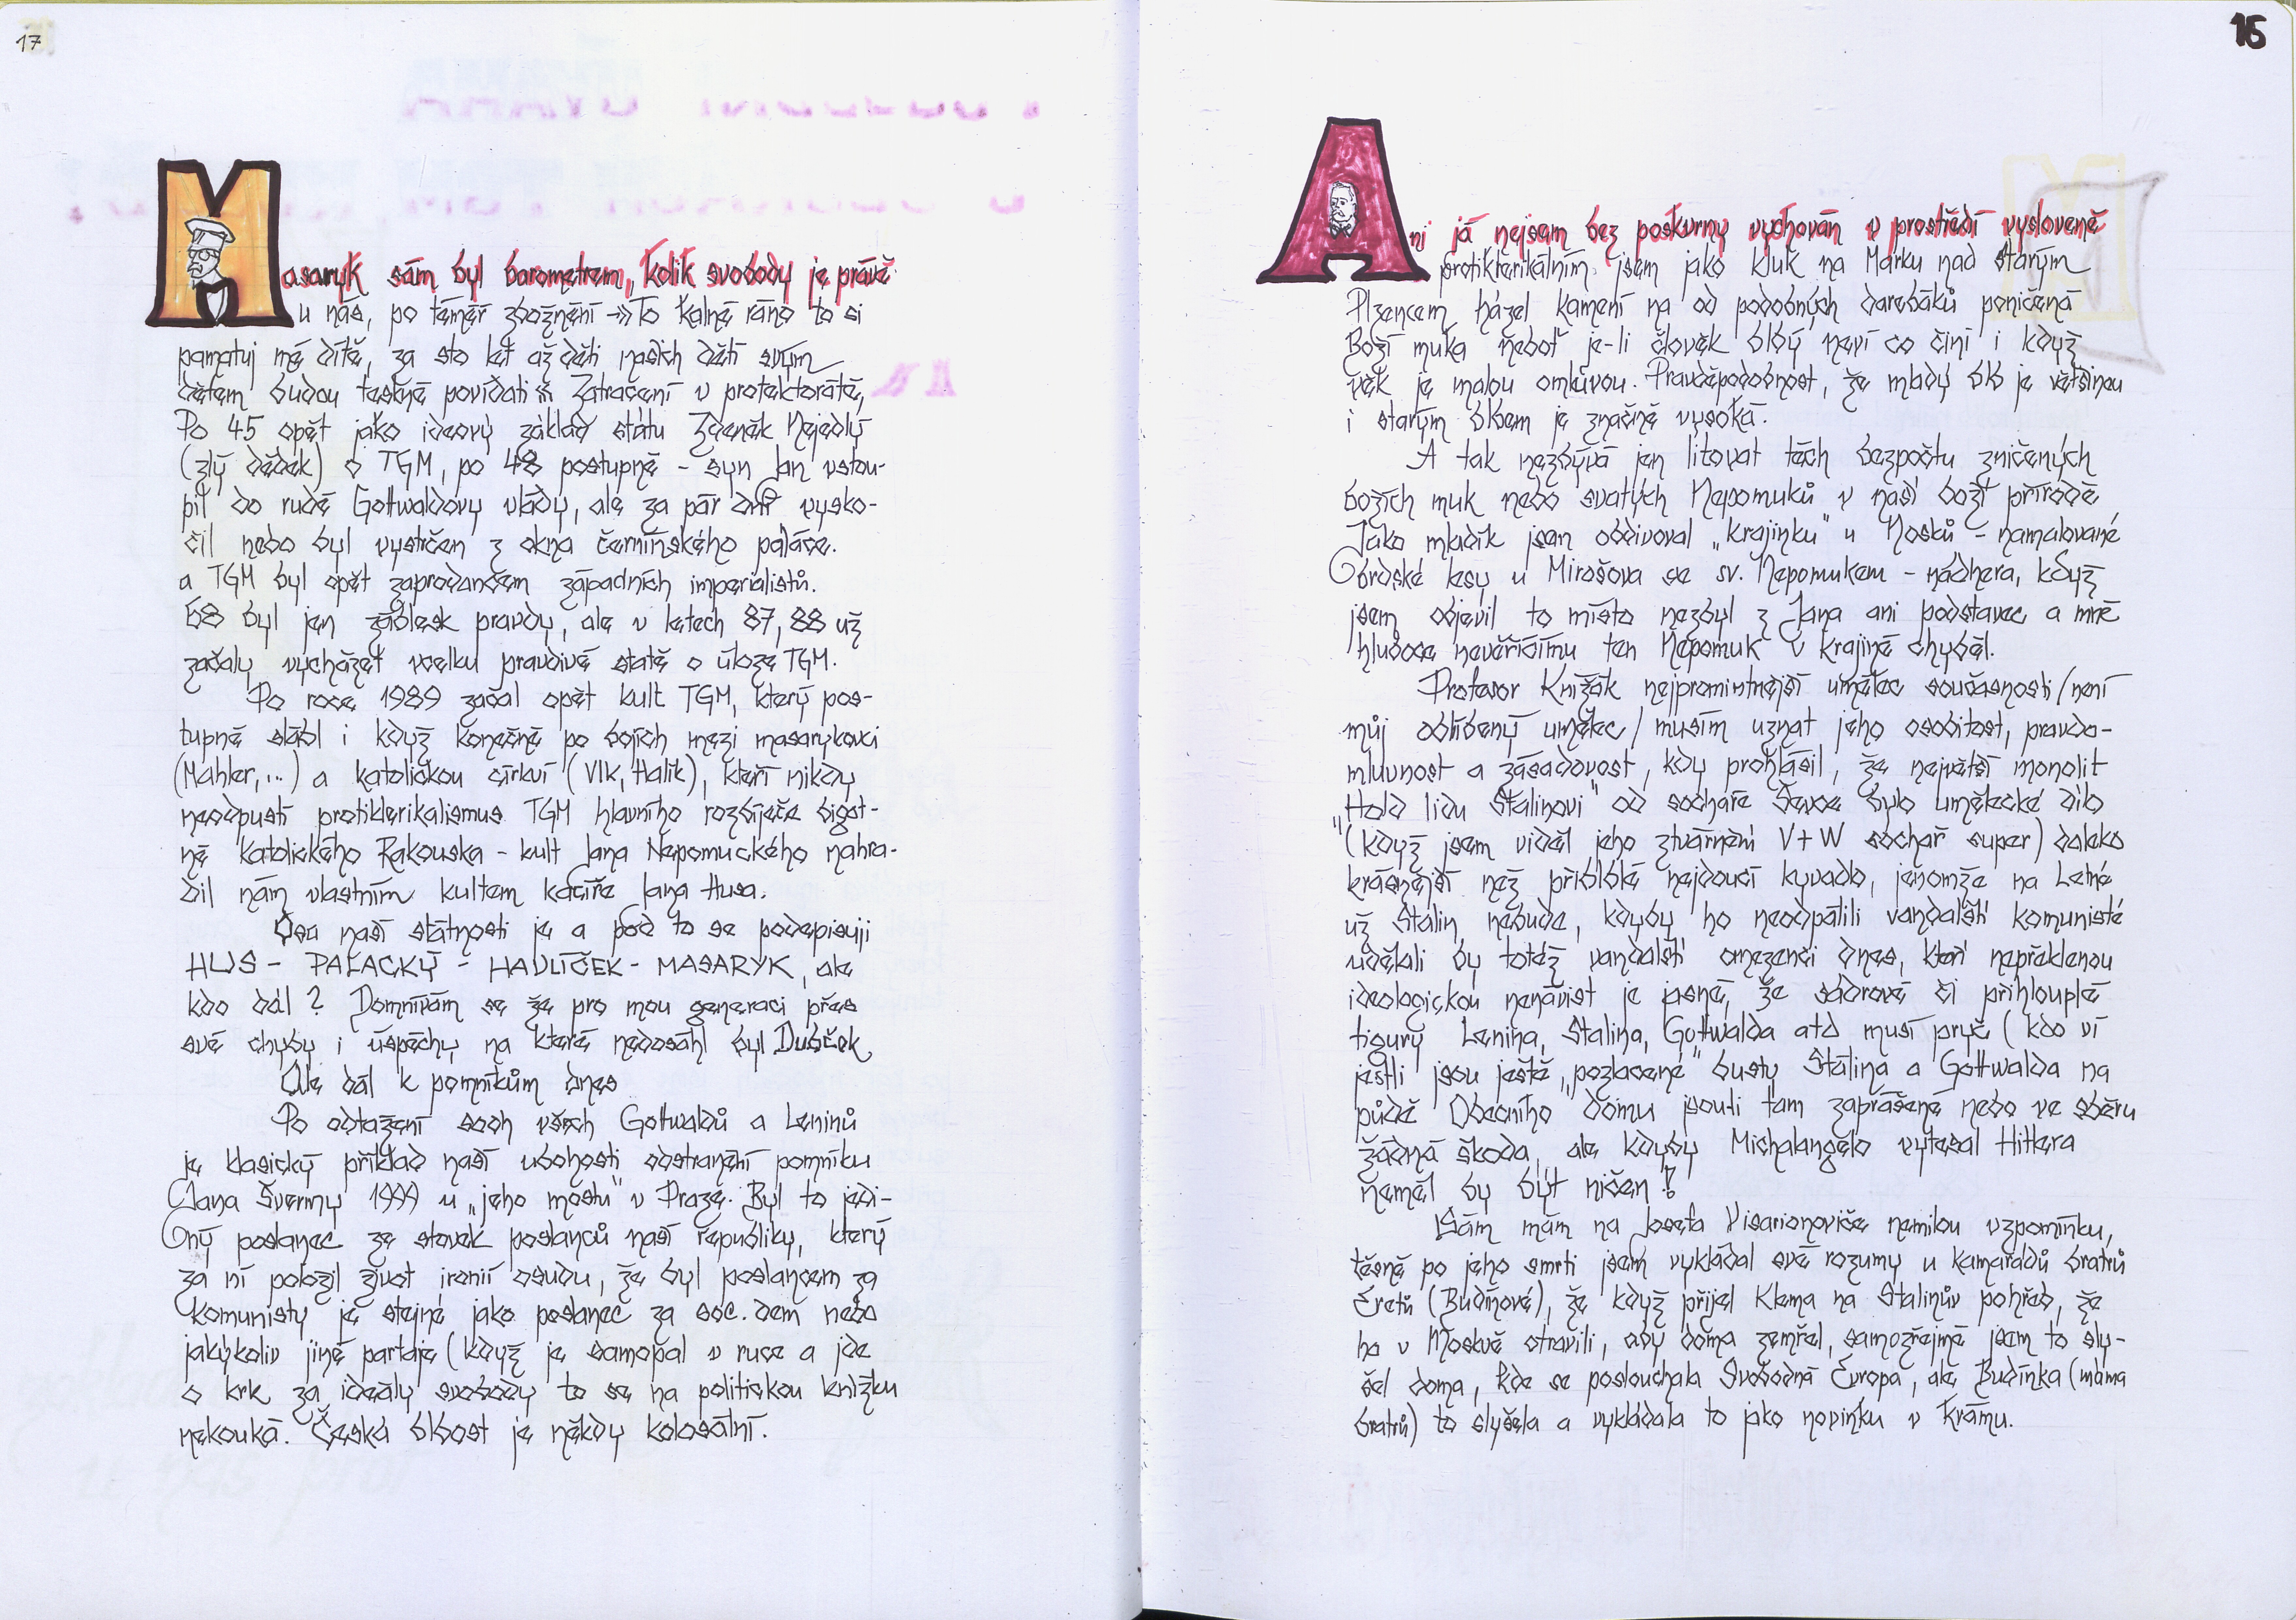 17
Masaryk sám byl barometrem, kolik svobody je právě
u nás, po téměř zbožnění →» To kalné ráno to si
pamatuj mé dítě, za sto let až děti našich dětí svým
dětem budou teskně povídati « Zatracení v protektorátě,
Po 45 opět jako ideový základ státu Zdeněk Nejedlý
(zlý dědek) o TGM, po 48 postupně - syn Jan vstou-
pil do rudé Gottwaldovy vlády, ale za pár dní vysko-
čil nebo byl vystrčen z okna černínského paláce.
a TGM byl opět zaprodancem západních imperialistů.
68 byl jen záblesk pravdy, ale v letech 87, 88 už
začaly vycházet vcelku pravdivé statě o úloze TGM.
Po roce 1989 začal opět kult TGM, který pos-
tupně slábl i když konečně po bojích mezi masarykovci
(Mahler,...) a katolickou církví (Vlk, Halík), kteří nikdy
neodpustí protiklerikalismus TGM hlavního rozbíječe bigot-
ně katolického Rakouska - kult Jana Nepomuckého nahra-
dil nám vlastním kultem kacíře Jana Husa.
Osa naší státnosti je a pod to se podepisuji
HUS - PALACKÝ - HAVLÍČEK - MASARYK, ale
kdo dál? Domnívám se že pro mou generaci přes
své chyby i úspěchy na které nedosáhl byl Dubček
Ale dál k pomníkům dnes
Po odtažení soch všech Gottwaldů a Leninů
je klasický příklad naší ubohosti odstranění pomníku
Jana Švermy 1999 u „jeho mostu" v Praze. Byl to jedi-
ný poslanec ze stovek poslanců naší republiky, který
za ní položil život ironií osudu, že byl poslancem za
komunisty je stejné jako poslanec za soc. dem nebo
jakýkoliv jiné partaje (když je samopal v ruce a jde
o krk za ideály svobody to se na politickou knížku
nekouká. Česká blbost je někdy kolosální.
16
Ani já nejsem bez poskvrny vychován v prostředí vysloveně
protiklerikálním jsem jako kluk na Marku nad starým
Plzencem házel kamení na od podobných darebáků poničená
Boží muka neboť je-li člověk blbý neví co činí i když
věk je malou omluvou. Pravděpodobnost, že mladý blb je většinou
i starým blbem je značně vysoká.
A tak nezbývá jen litovat těch bezpočtu zničených
božích muk nebo svatých Nepomuků v naší boží přírodě,
Jako mladík jsem obdivoval „krajinku" u Nosků - namalované
brdské lesy u Mirošova se sv. Nepomukem - nádhera, když
jsem objevil to místo nezbyl z Jana ani podstavec a mně
hluboce nevěřícímu ten Nepomuk v krajině chyběl.
Profesor Knížák nejpromintnější umělec současnosti/není
můj oblíbený umělec/ musím uznat jeho osobitost, pravdo-
mluvnost a zásadovost, kdy prohlásil, že největší monolit
"Hold lidu Stalinovi" od sochaře Švece bylo umělecké dílo
(když jsem viděl jeho ztvárnění V+W sochař super) daleko
krásnější než přiblblé nejdoucí kyvadlo, jenomže na Letné
už Stalin nebude, kdyby ho neodpálili vandalští komunisté
udělali by totéž vandalští omezenci dnes, kteří nepřeklenou
ideologickou nenávist je jasné, že sádrové či přihlouplé
figury Lenina, Stalina, Gottwalda atd musí pryč (kdo ví
jestli jsou ještě „pozlacené" busty Stalina a Gottwalda na
půdě Obecního domu jsouli tam zaprášené nebo ve sběru
žádná škoda, ale kdyby Michalangelo vytesal Hitlera
neměl by být ničen!?
Sám mám na Josefa Visarionoviče nemilou vzpomínku,
těsně po jeho smrti jsem vykládal své rozumy u kamarádů bratrů
Eretů (Budínové), že když přijel Klema na Stalinův pohřeb, že
ho v Moskvě otrávili, aby doma zemřel, samozřejmě jsem to sly-
šel doma, kde se poslouchala Svobodná Evropa, ale Budínka (máma
bratrů) to slyšela a vykládala to jako novinku v Krámu.